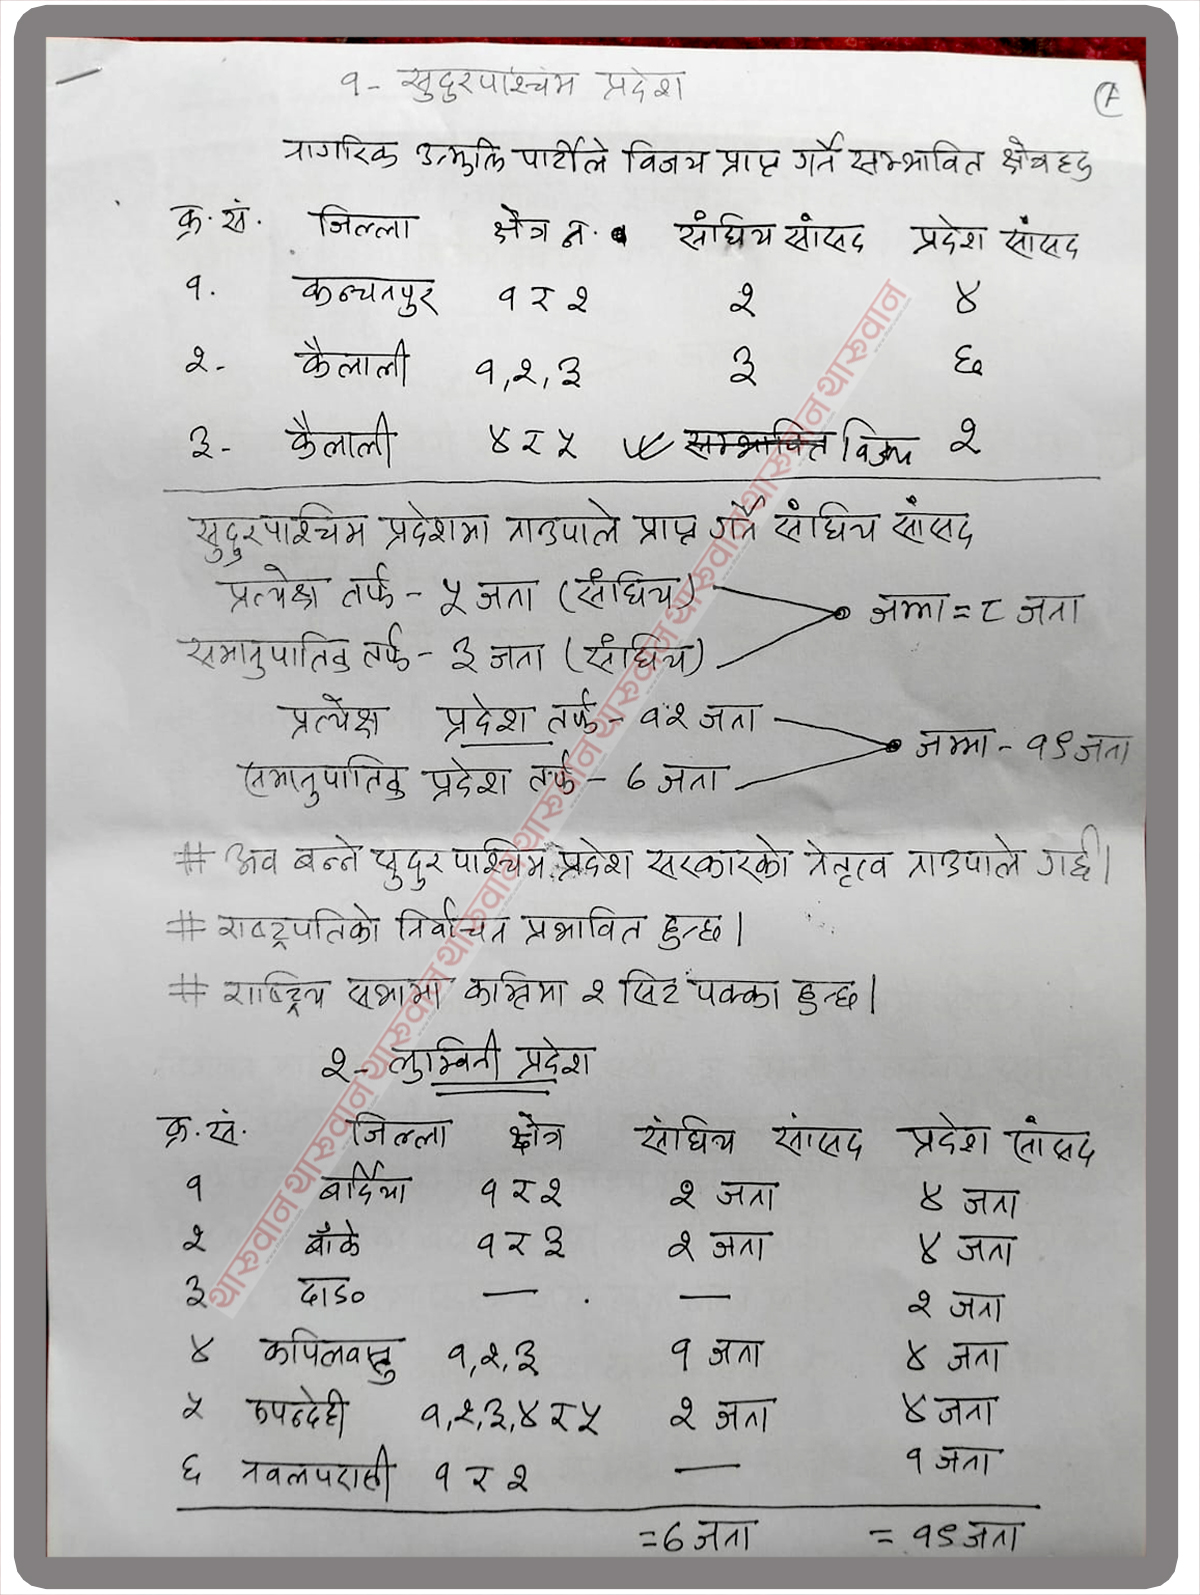 १- सुदुरपाश्चिम प्रदेश
नागरिक उन्मुक्ति पार्टीले विजय प्राप्त गर्ने सम्भावित क्षेत्रहरु
क्र.सं. जिल्ला क्षेत्र न. संघिय सांसद प्रदेश सांसद
१. कन्चनपुर १ र २ २ ४
२- कैलाली १,२,३ ३ ६
३- कैलाली ४ र ५ सम्भावित विजय २
सुदुरपाश्चिम प्रदेशमा नाउपाले प्राप्त गर्ने संघिय सांसद
प्रत्येक्ष तर्फ - ५ जना (संघिय)
जम्मा = ८ जना
समानुपातिक तर्फ - ३ जना (संघिय)
प्रत्येक्ष प्रदेश तर्फ - १२ जना
जम्मा - १९ जना
समानुपातिक प्रदेश तर्फ - ७ जना
# अव बन्ने सुदुरपाश्चिम प्रदेश सरकारको नेतृत्व नाउपाले गर्छ।
# राष्ट्रपतिको निर्वाचन प्रभावित हुन्छ।
# राष्ट्रिय सभामा कम्तिमा २ सिट पक्का हुन्छ।
२- लुम्विनी प्रदेश
क्र.सं. जिल्ला क्षेत्र संघिय सांसद प्रदेश सांसद
१ बर्दिया १ र २ २ जना ४ जना
२ बाँके १ र ३ २ जना ४ जना
३ दाङ — — २ जना
४ कपिलवस्तु १,२,३ १ जना ४ जना
५ रुपन्देही १,२,३,४ र ५ २ जना ४ जना
६ नवलपरासी १ र २ — १ जना
= ७ जना = १९ जना
थारूवान थारूवान थारूवान थारूवान थारूवान थारूवान थारूवान थारूवान थारूवान थारूवान